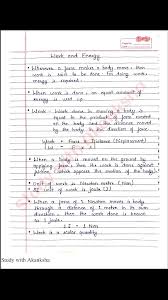 Work and Energy
• Whenever a force makes a body move then
work is said to be done for doing work
energy is required.
• When work is done, an equal amount of
energy is used up.
• Work : Work done in moving a body is
equal to the product of force exerted
on the body and the distance moved
by the body in the direction of force.
Work = Force x Distance (Displacement)
W = F x S
• When a body is moved on the ground by
applying force, then the work is done against
friction (which opposes the motion of the body).
• Unit of work is Newton metre (Nm)
SI unit of work is joule (J)
• When a force of 1 Newton moves a body
through a distance of 1 metre in its own
direction, then the work done is known
as 1 Joule.
1J = 1 Nm
• Work is a scalar quantity
Study with Akanksha